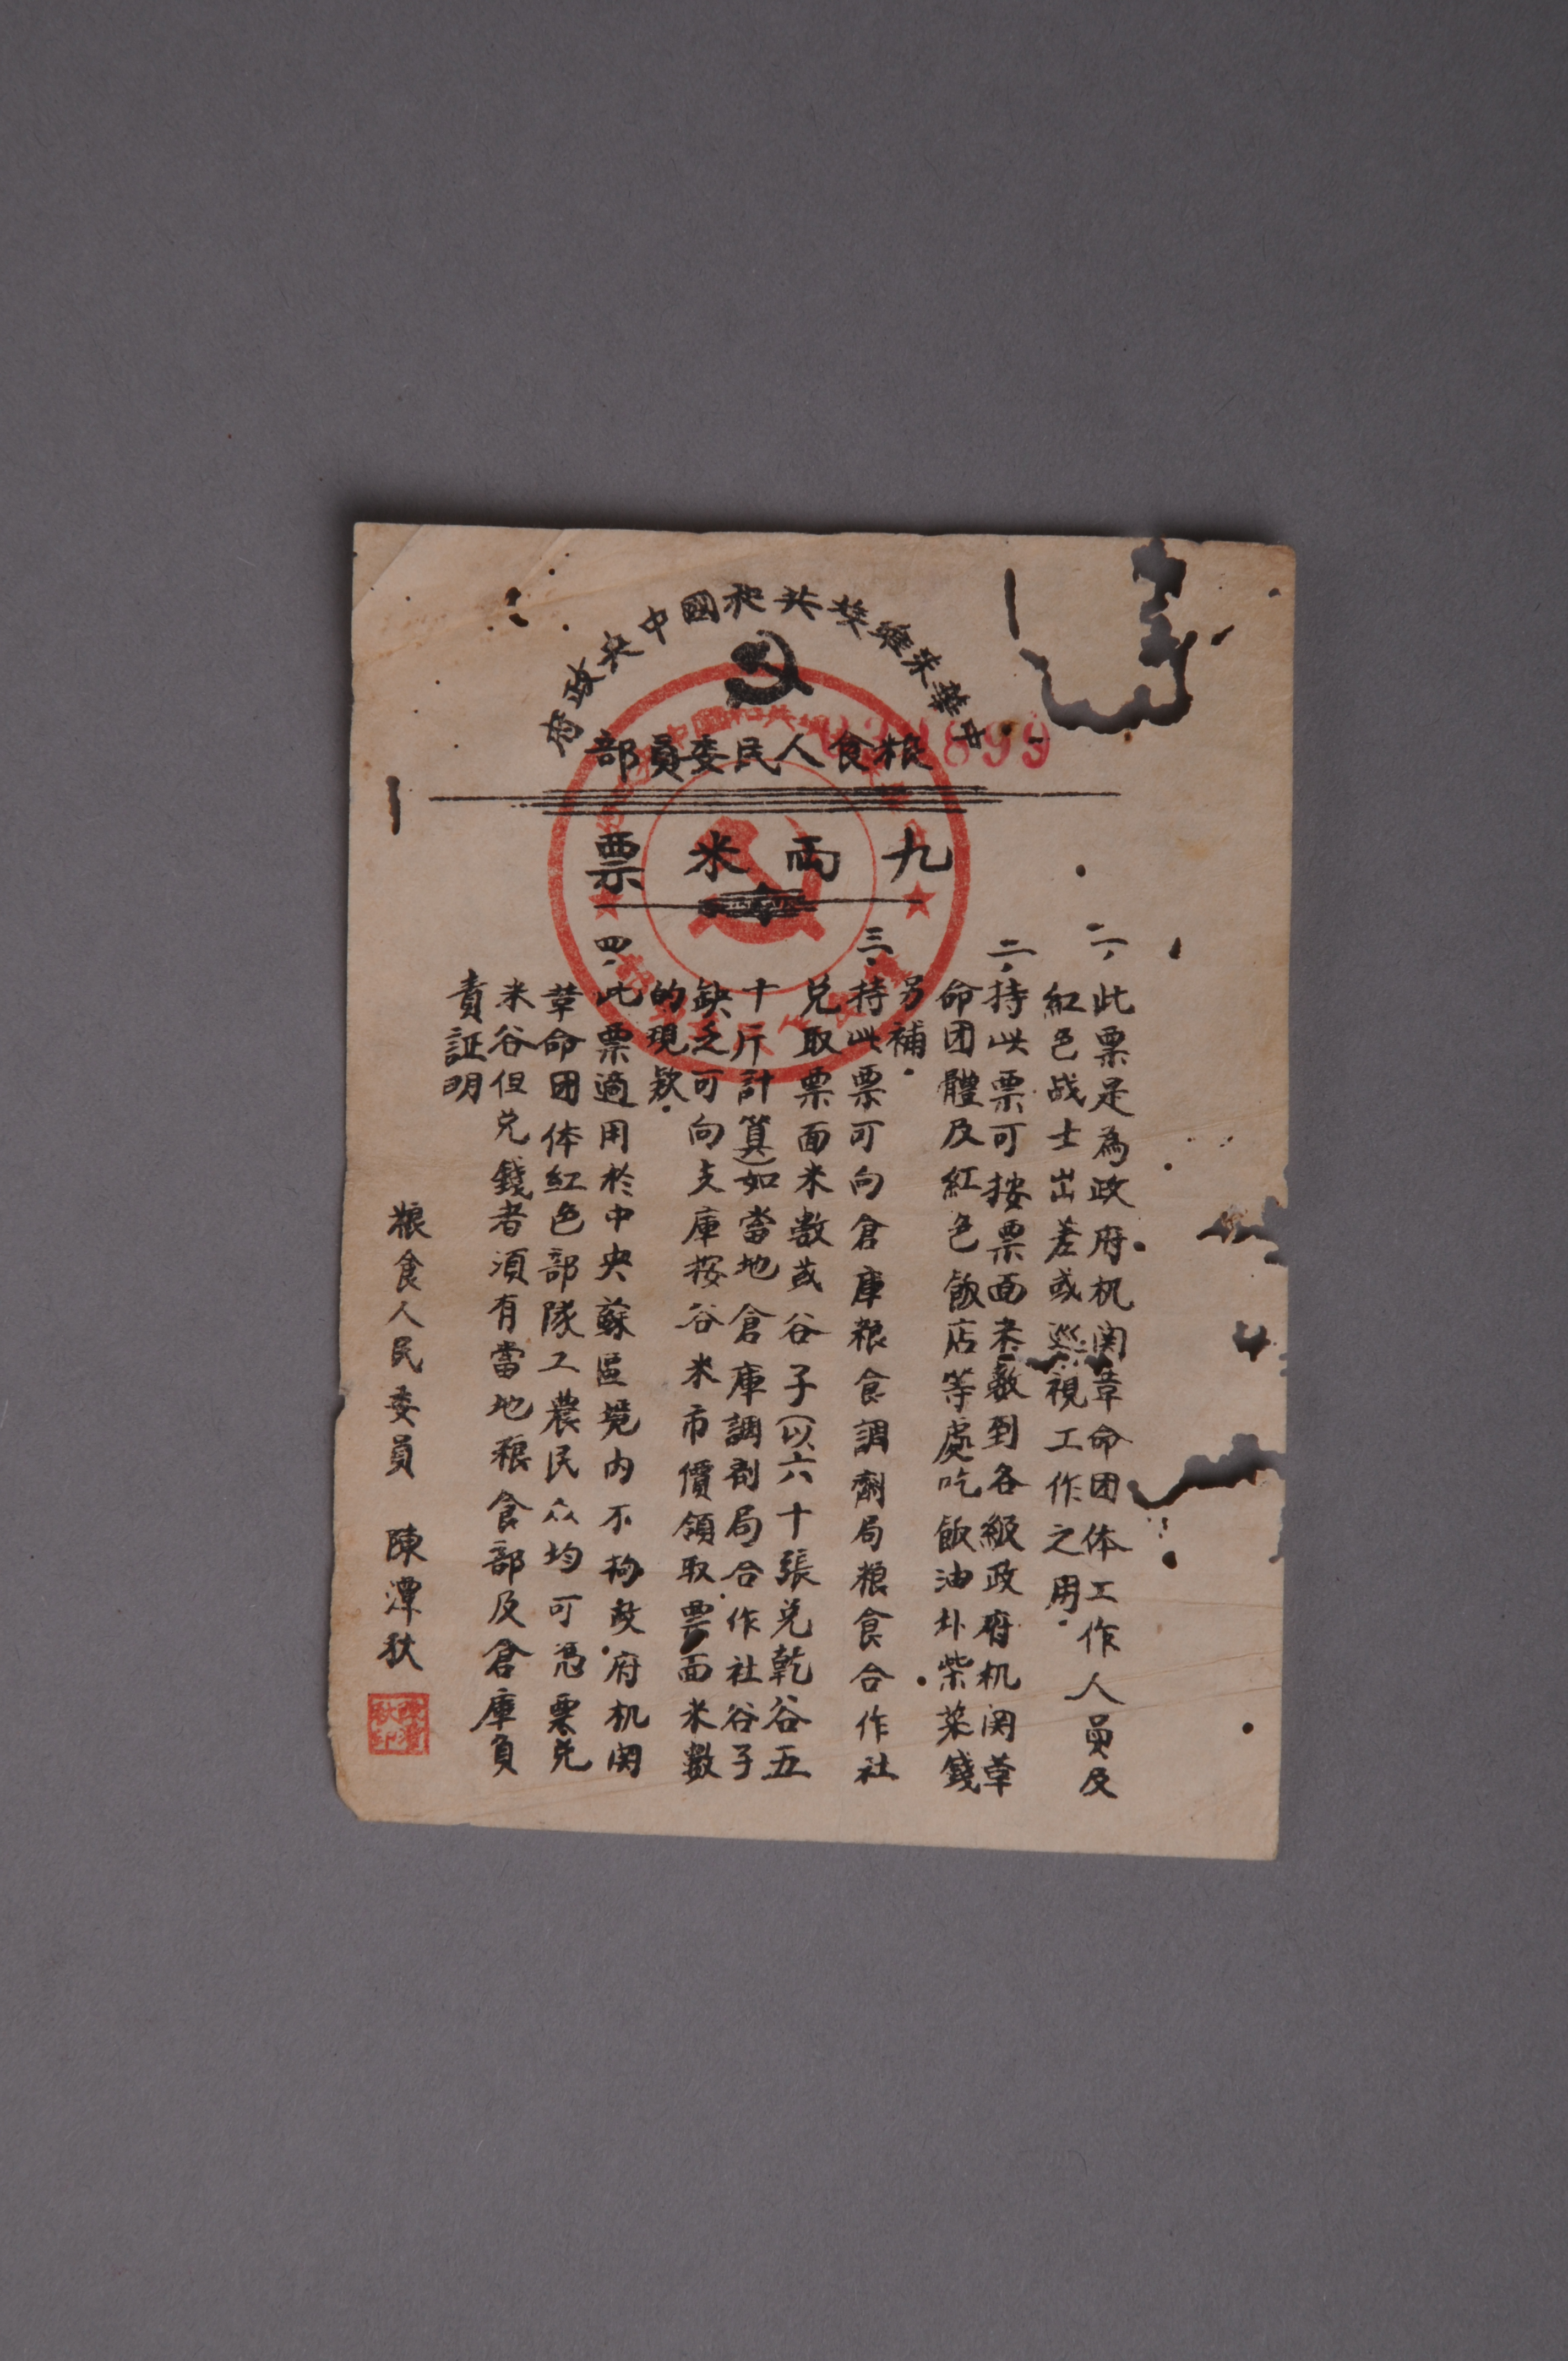 中華朱維埃共和國中央政府
粮食人民委員部
899
九兩米票
一、此票是為政府机関革命团体工作人員及
紅色战士出差或巡視工作之用.
二、持此票可按票面米数到各級政府机関革
命团體及紅色飯店等處吃飯油塩柴菜錢
另補.
三、持此票可向倉庫粮食調劑局粮食合作社
兑取票面米数或谷子(以六十張兑乾谷五
十斤計算)如當地倉庫調剂局合作社谷子
缺乏可向支庫按谷米市價領取票面米数
的現款.
四、此票適用於中央蘇區境内不拘政府机関
革命团体紅色部隊工農民众均可憑票兑
米谷但兑錢者須有當地粮食部及倉庫負
責証明
粮食人民委員 陳潭秋
陳潭秋印